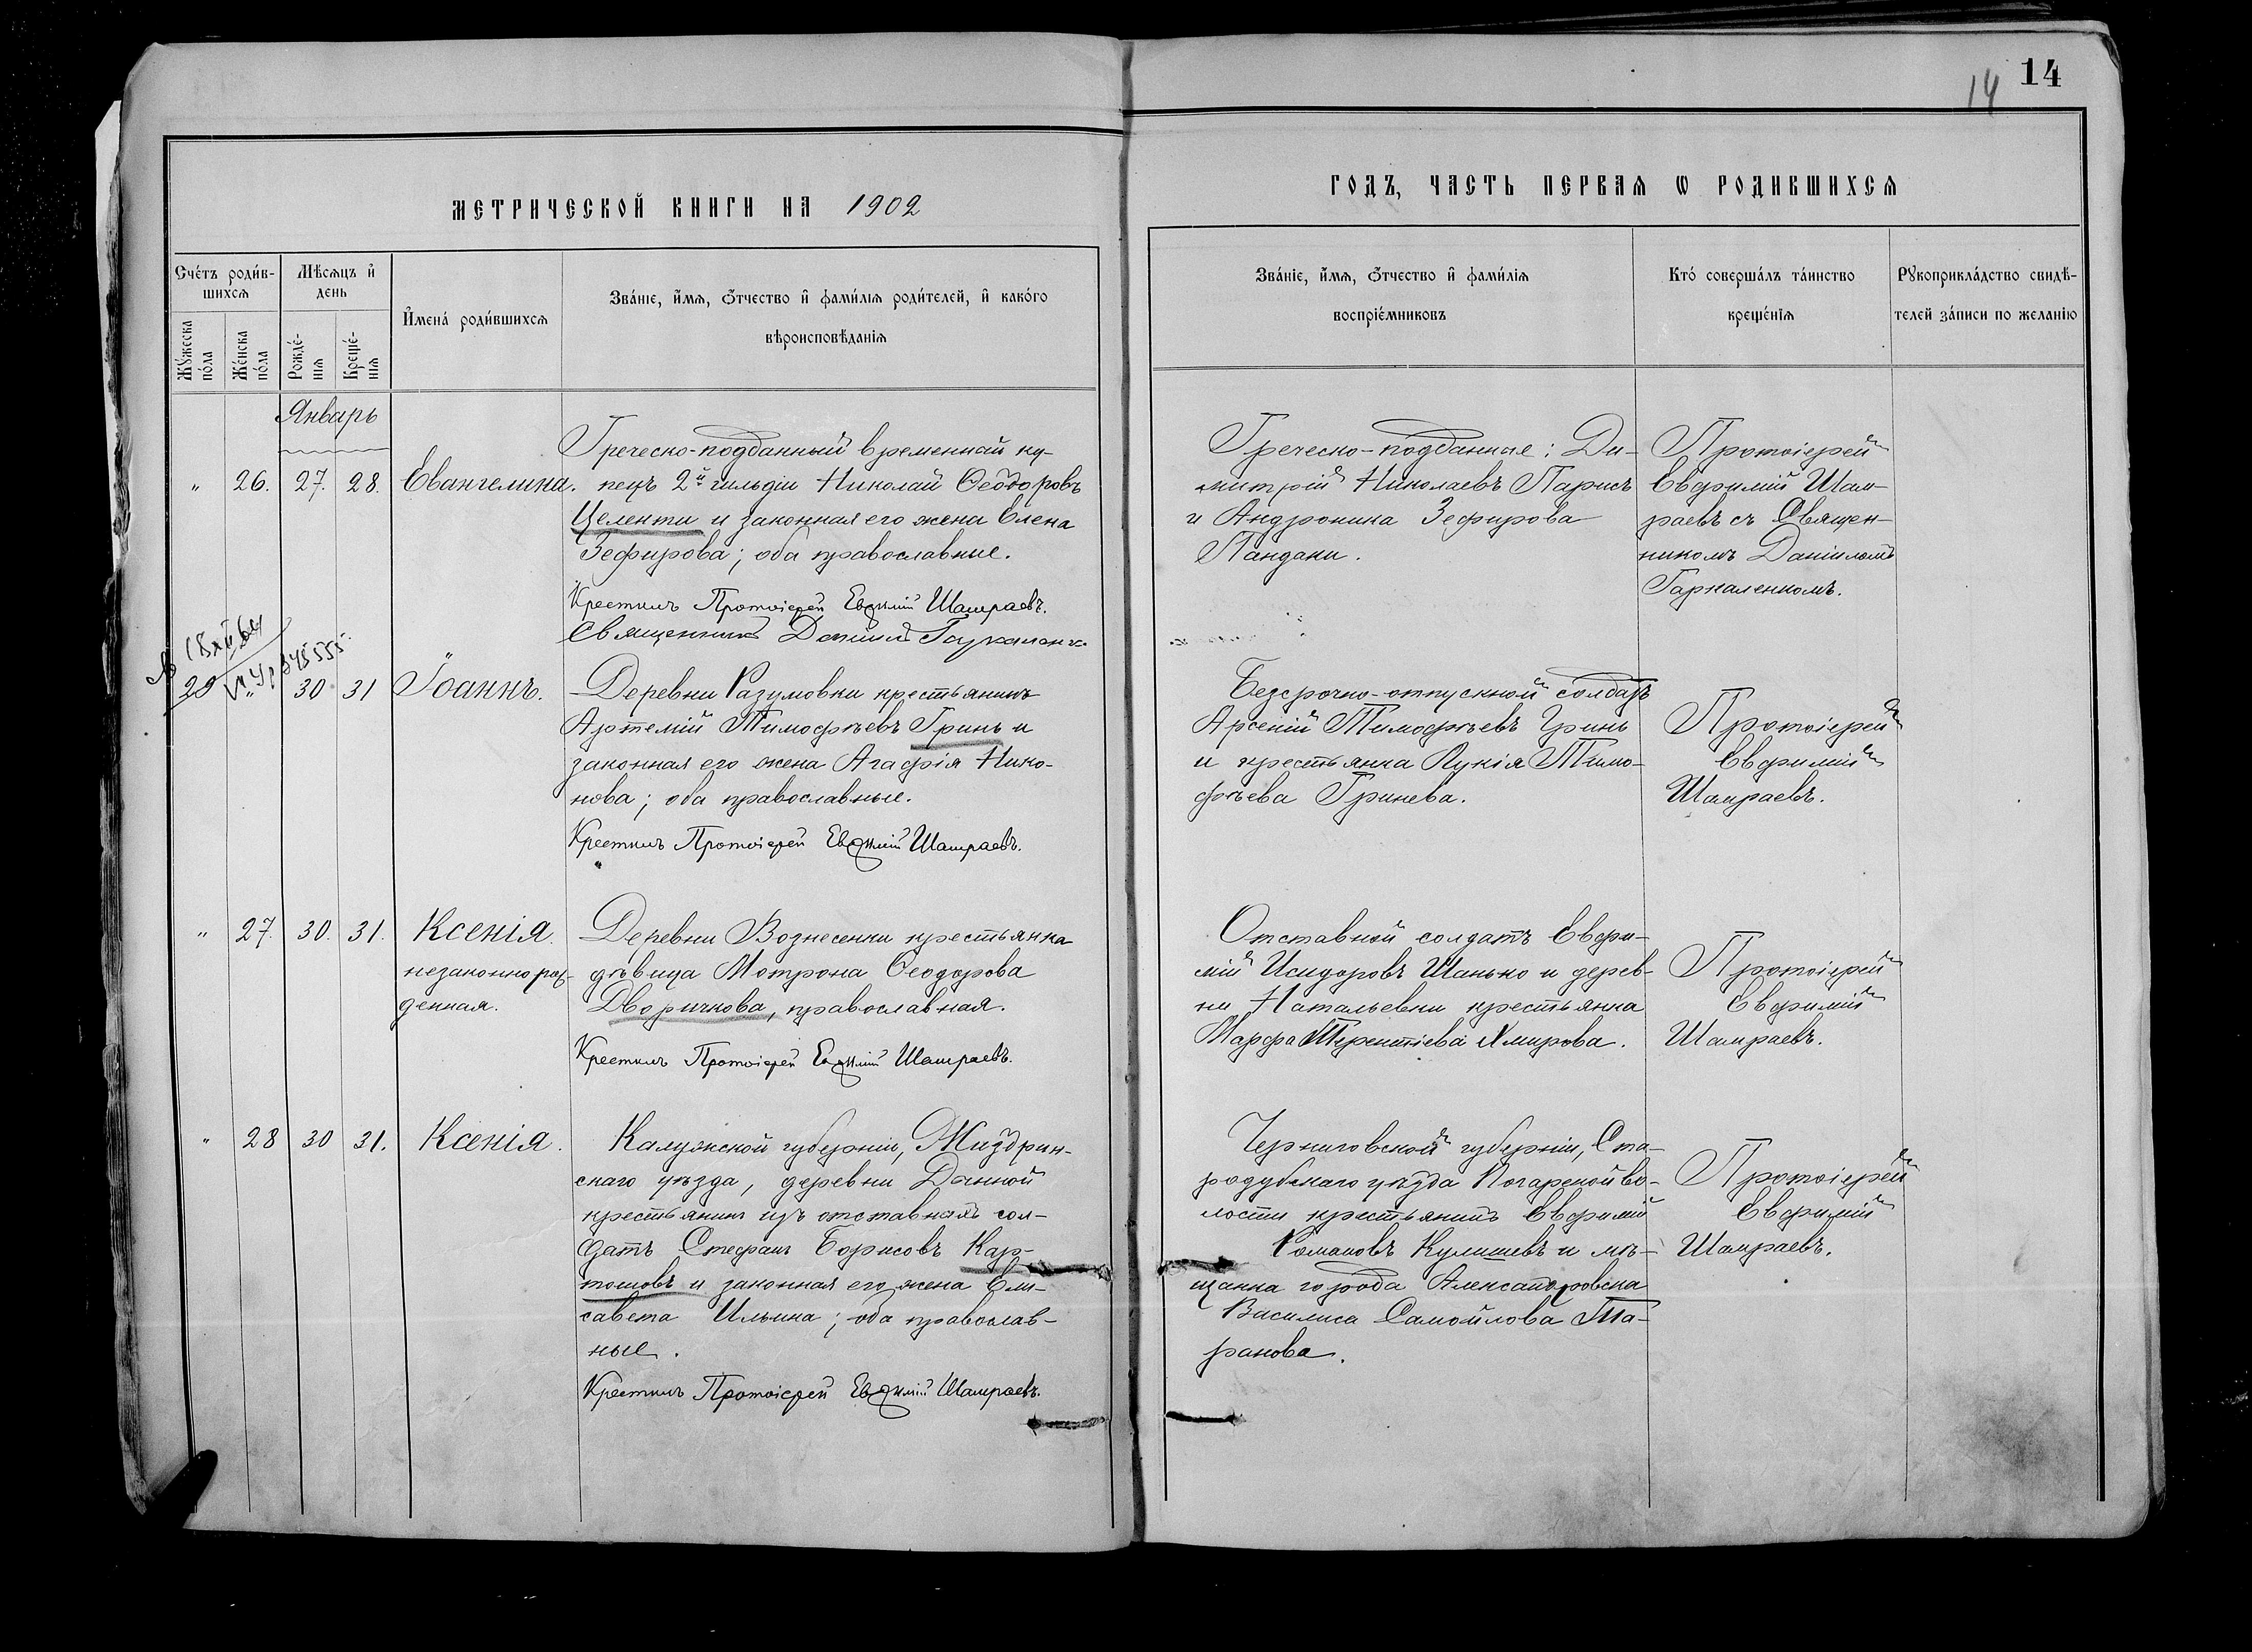 14
14
МЕТРИЧЕСКОЙ КНИГИ НА 1902
ГОДЪ, ЧАСТЬ ПЕРВАЯ Ѡ РОДИВШИХСЯ
Сче́тъ роди́в-
шихсѧ
Мѣсѧцъ и҆
день
И҆мена́ роди́вшихсѧ
Зва́нїе, и҆́мѧ, ѻ҆́тчество и҆ фами́лїѧ роди́телей, и҆ како́гѡ
вѣроисповѣ́данїѧ
Мꙋ́жеска
по́ла
Же́нска
по́ла
Рожде́-
нїѧ
Креще́-
нїѧ
Зва́нїе, и҆́мѧ, ѻ҆́тчество и҆ фами́лїѧ
воспрїе́мниковъ
Кто̀ соверша́лъ та́инство
креще́нїѧ
Рꙋкоприкла́дство свидѣ́-
телей за́писи по жела́нїю
Январь
" 26. 27. 28. Евангелина.
Греческо-подданный временный ку-
пецъ 2й гильдіи Николай Ѳеодоровъ
Целенти и законная его жена Елена
Зефирова; оба православные.
Крестилъ Протоіерей Евѳимій Шамраевъ.
Священникъ Даніилъ Гаркаленко
Греческо-подданные: Ди-
митрій Николаевъ Парисъ
и Андроника Зефирова
Пандаки.
Протоіерей
Евфимій Шам-
раевъ съ Священ-
никомъ Даніиломъ
Гаркаленкомъ.
29 " 30 31 Іоаннъ.
Деревни Разумовки крестьянинъ
Артемій Тимофѣевъ Гринь и
законная его жена Агафія Нико-
нова; оба православные.
Крестилъ Протоіерей Евѳимій Шамраевъ.
Безсрочно-отпускной солдатъ
Арсеній Тимофѣевъ Гринь
и крестьянка Лукія Тимо-
фѣева Гринева.
Протоіерей
Евфимій
Шамраевъ.
" 27 30. 31. Ксенія.
незаконнорож-
денная.
Деревни Вознесенки крестьянка
дѣвица Мотрона Ѳеодорова
Дворичкова, православная.
Крестилъ Протоіерей Евѳимій Шамраевъ.
Отставной солдатъ Евфи-
мій Исидоровъ Шанько и дерев-
ни Натальевки крестьянка
Марфа Терентіева Хмирова.
Протоіерей
Евфимій
Шамраевъ.
" 28 30 31. Ксенія.
Калужской губерніи, Жиздрин-
скаго уѣзда, деревни Данной
крестьянинъ изъ отставныхъ сол-
датъ Стефанъ Борисовъ Кар-
тошовъ и законная его жена Ели-
савета Ильина; оба православ-
ные.
Крестилъ Протоіерей Евѳимій Шамраевъ.
Черниговской губерніи, Ста-
родубскаго уѣзда Погарской во-
лости крестьянинъ Евфимій
Романовъ Кулишевъ и мѣ-
щанка города Александровска
Василиса Самойлова Та-
ранова.
Протоіерей
Евфимій
Шамраевъ.